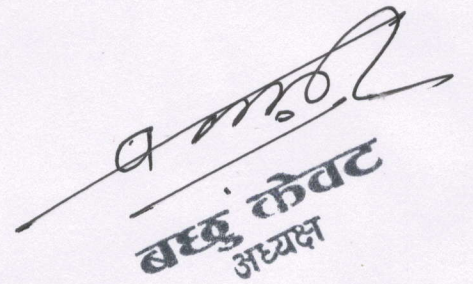 बच्छु केवट
अध्यक्ष